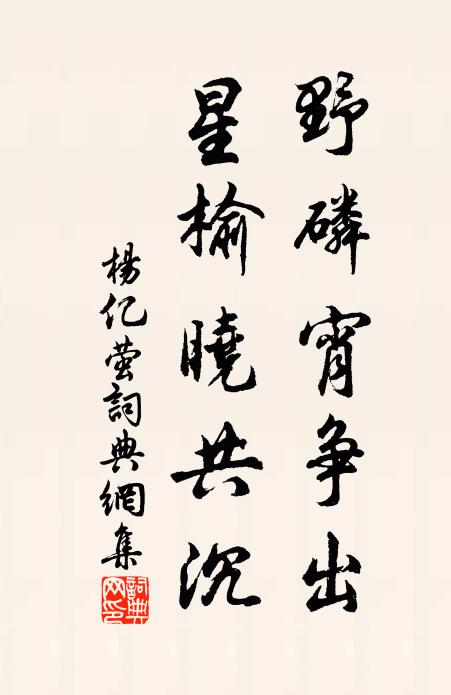 野磷宵争出
星榆曉共沉
楊亿萤詞典網集
詞典網印